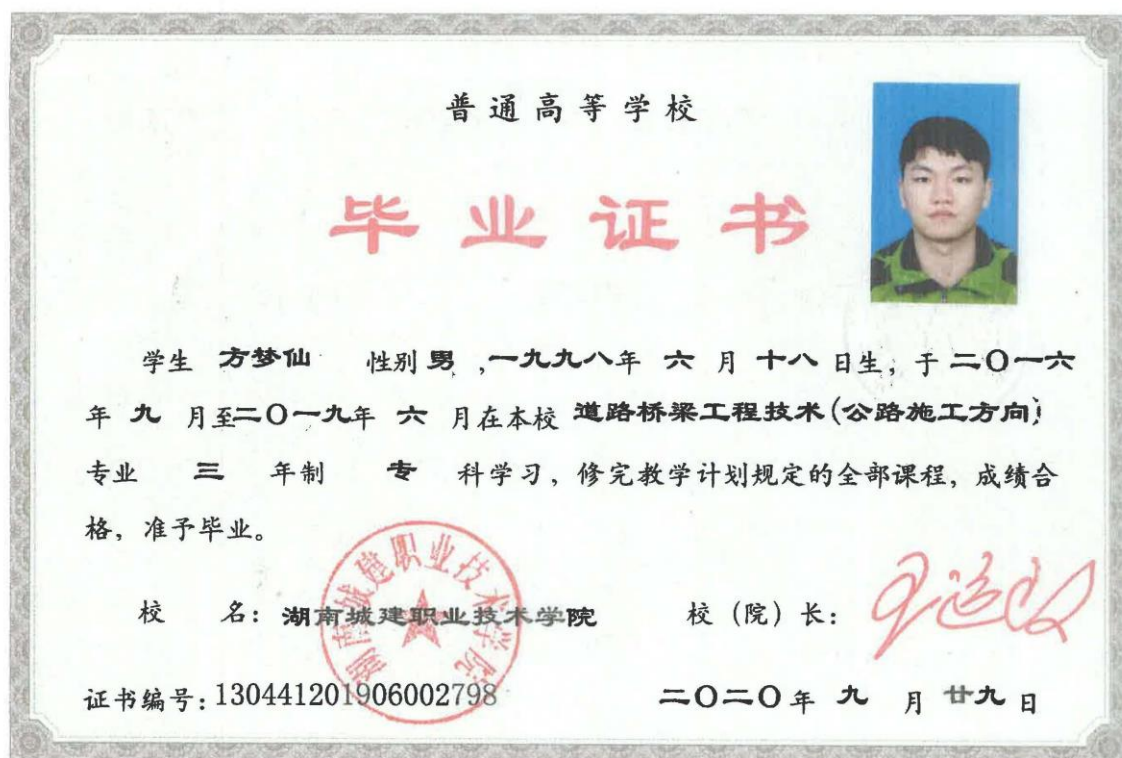 普通高等学校
毕业证书
学生 方梦仙 性别 男 ,一九九八年 六 月 十八 日生, 于 二〇一六
年 九 月至二〇一九年 六 月在本校 道路桥梁工程技术(公路施工方向)
专业 三 年制 专 科学习, 修完教学计划规定的全部课程, 成绩合
格, 准予毕业。
湖南城建职业技术学院
校 名: 湖南城建职业技术学院 校(院)长:
证书编号: 130441201906002798 二〇二〇年 九 月 廿九 日